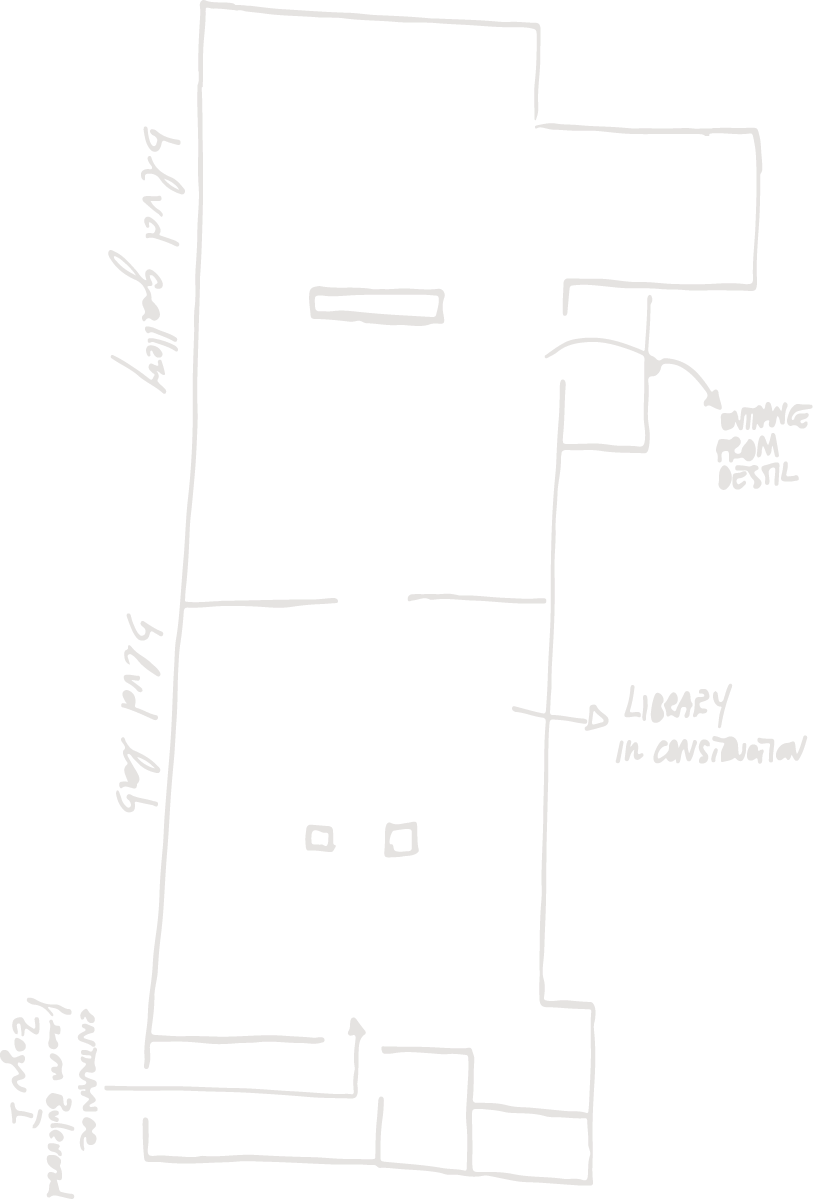 blvd gallery
ENTRANCE
FROM
DESTIL
blvd lab
LIBRARY
IN CONSTRUCTION
ENTRANCE
from Bulevard
Zogu I